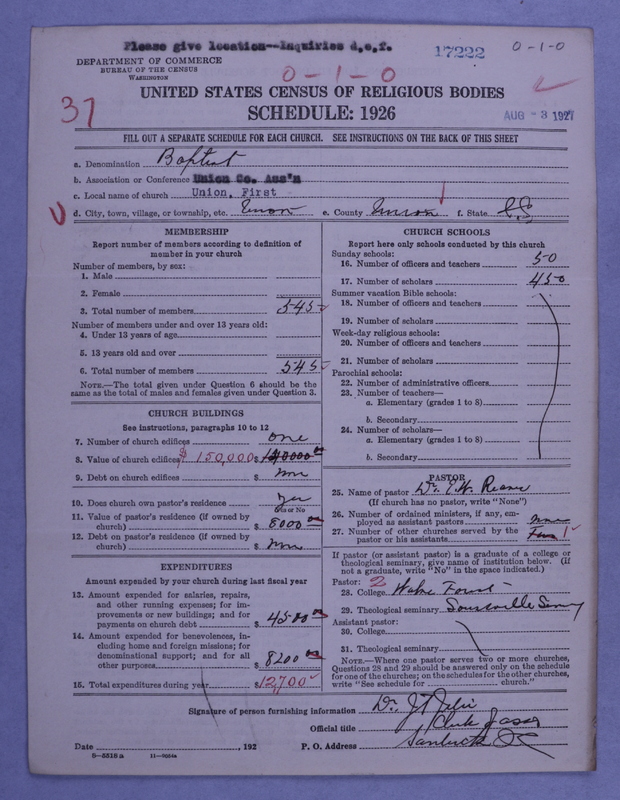 Please give location--Inquiries d,e,f.
17222
0-1-0
DEPARTMENT OF COMMERCE
BUREAU OF THE CENSUS
WASHINGTON
0-1-0
37
UNITED STATES CENSUS OF RELIGIOUS BODIES
SCHEDULE: 1926
AUG -3 1927
FILL OUT A SEPARATE SCHEDULE FOR EACH CHURCH. SEE INSTRUCTIONS ON THE BACK OF THIS SHEET
a. Denomination Baptist
b. Association or Conference Union Co. Ass'n
c. Local name of church Union, First
d. City, town, village, or township, etc. Union e. County Union f. State S.C.
MEMBERSHIP
Report number of members according to definition of
member in your church
Number of members, by sex:
1. Male
2. Female
3. Total number of members 545
Number of members under and over 13 years old:
4. Under 13 years of age
5. 13 years old and over
6. Total number of members 545
NOTE.—The total given under Question 6 should be the
same as the total of males and females given under Question 3.
CHURCH BUILDINGS
See instructions, paragraphs 10 to 12
7. Number of church edifices one
8. Value of church edifices $ 150,000 $
9. Debt on church edifices $ none
10. Does church own pastor's residence yes
Yes or No
11. Value of pastor's residence (if owned by
church) $ 8000 00
12. Debt on pastor's residence (if owned by
church) $ none
EXPENDITURES
Amount expended by your church during last fiscal year
13. Amount expended for salaries, repairs,
and other running expenses; for im-
provements or new buildings; and for
payments on church debt $ 4500 00
14. Amount expended for benevolences, in-
cluding home and foreign missions; for
denominational support; and for all
other purposes $ 8200 00
15. Total expenditures during year $ 12,700
CHURCH SCHOOLS
Report here only schools conducted by this church
Sunday schools:
16. Number of officers and teachers 50
17. Number of scholars 450
Summer vacation Bible schools:
18. Number of officers and teachers
19. Number of scholars
Week-day religious schools:
20. Number of officers and teachers
21. Number of scholars
Parochial schools:
22. Number of administrative officers
23. Number of teachers—
a. Elementary (grades 1 to 8)
b. Secondary
24. Number of scholars—
a. Elementary (grades 1 to 8)
b. Secondary
PASTOR
25. Name of pastor Dr. E.W. Reane
(If church has no pastor, write "None")
26. Number of ordained ministers, if any, em-
ployed as assistant pastors none
27. Number of other churches served by the
pastor or his assistants 1
If pastor (or assistant pastor) is a graduate of a college or
theological seminary, give name of institution below. (If
not a graduate, write "No" in the space indicated.)
Pastor: 2
28. College Wake Forest
29. Theological seminary Louisville Semy
Assistant pastor:
30. College
31. Theological seminary
NOTE.—Where one pastor serves two or more churches,
Questions 28 and 29 should be answered only on the schedule
for one of the churches; on the schedules for the other churches,
write "See schedule for church."
Signature of person furnishing information Dr. J.T.
Official title Clerk Assn
Date , 192 P. O. Address Santuck SC
8-5518a 11-9034a